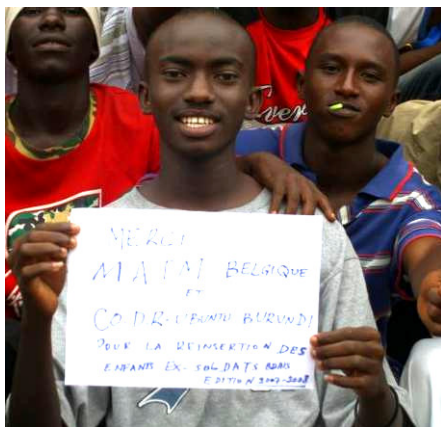 MERCI
BELGIQUE
ET
CO.D.R-UBUNTU BURUNDI
POUR LA REINSERTION DES
ENFANTS EX-SOLDATS
EDITION 2007-2008